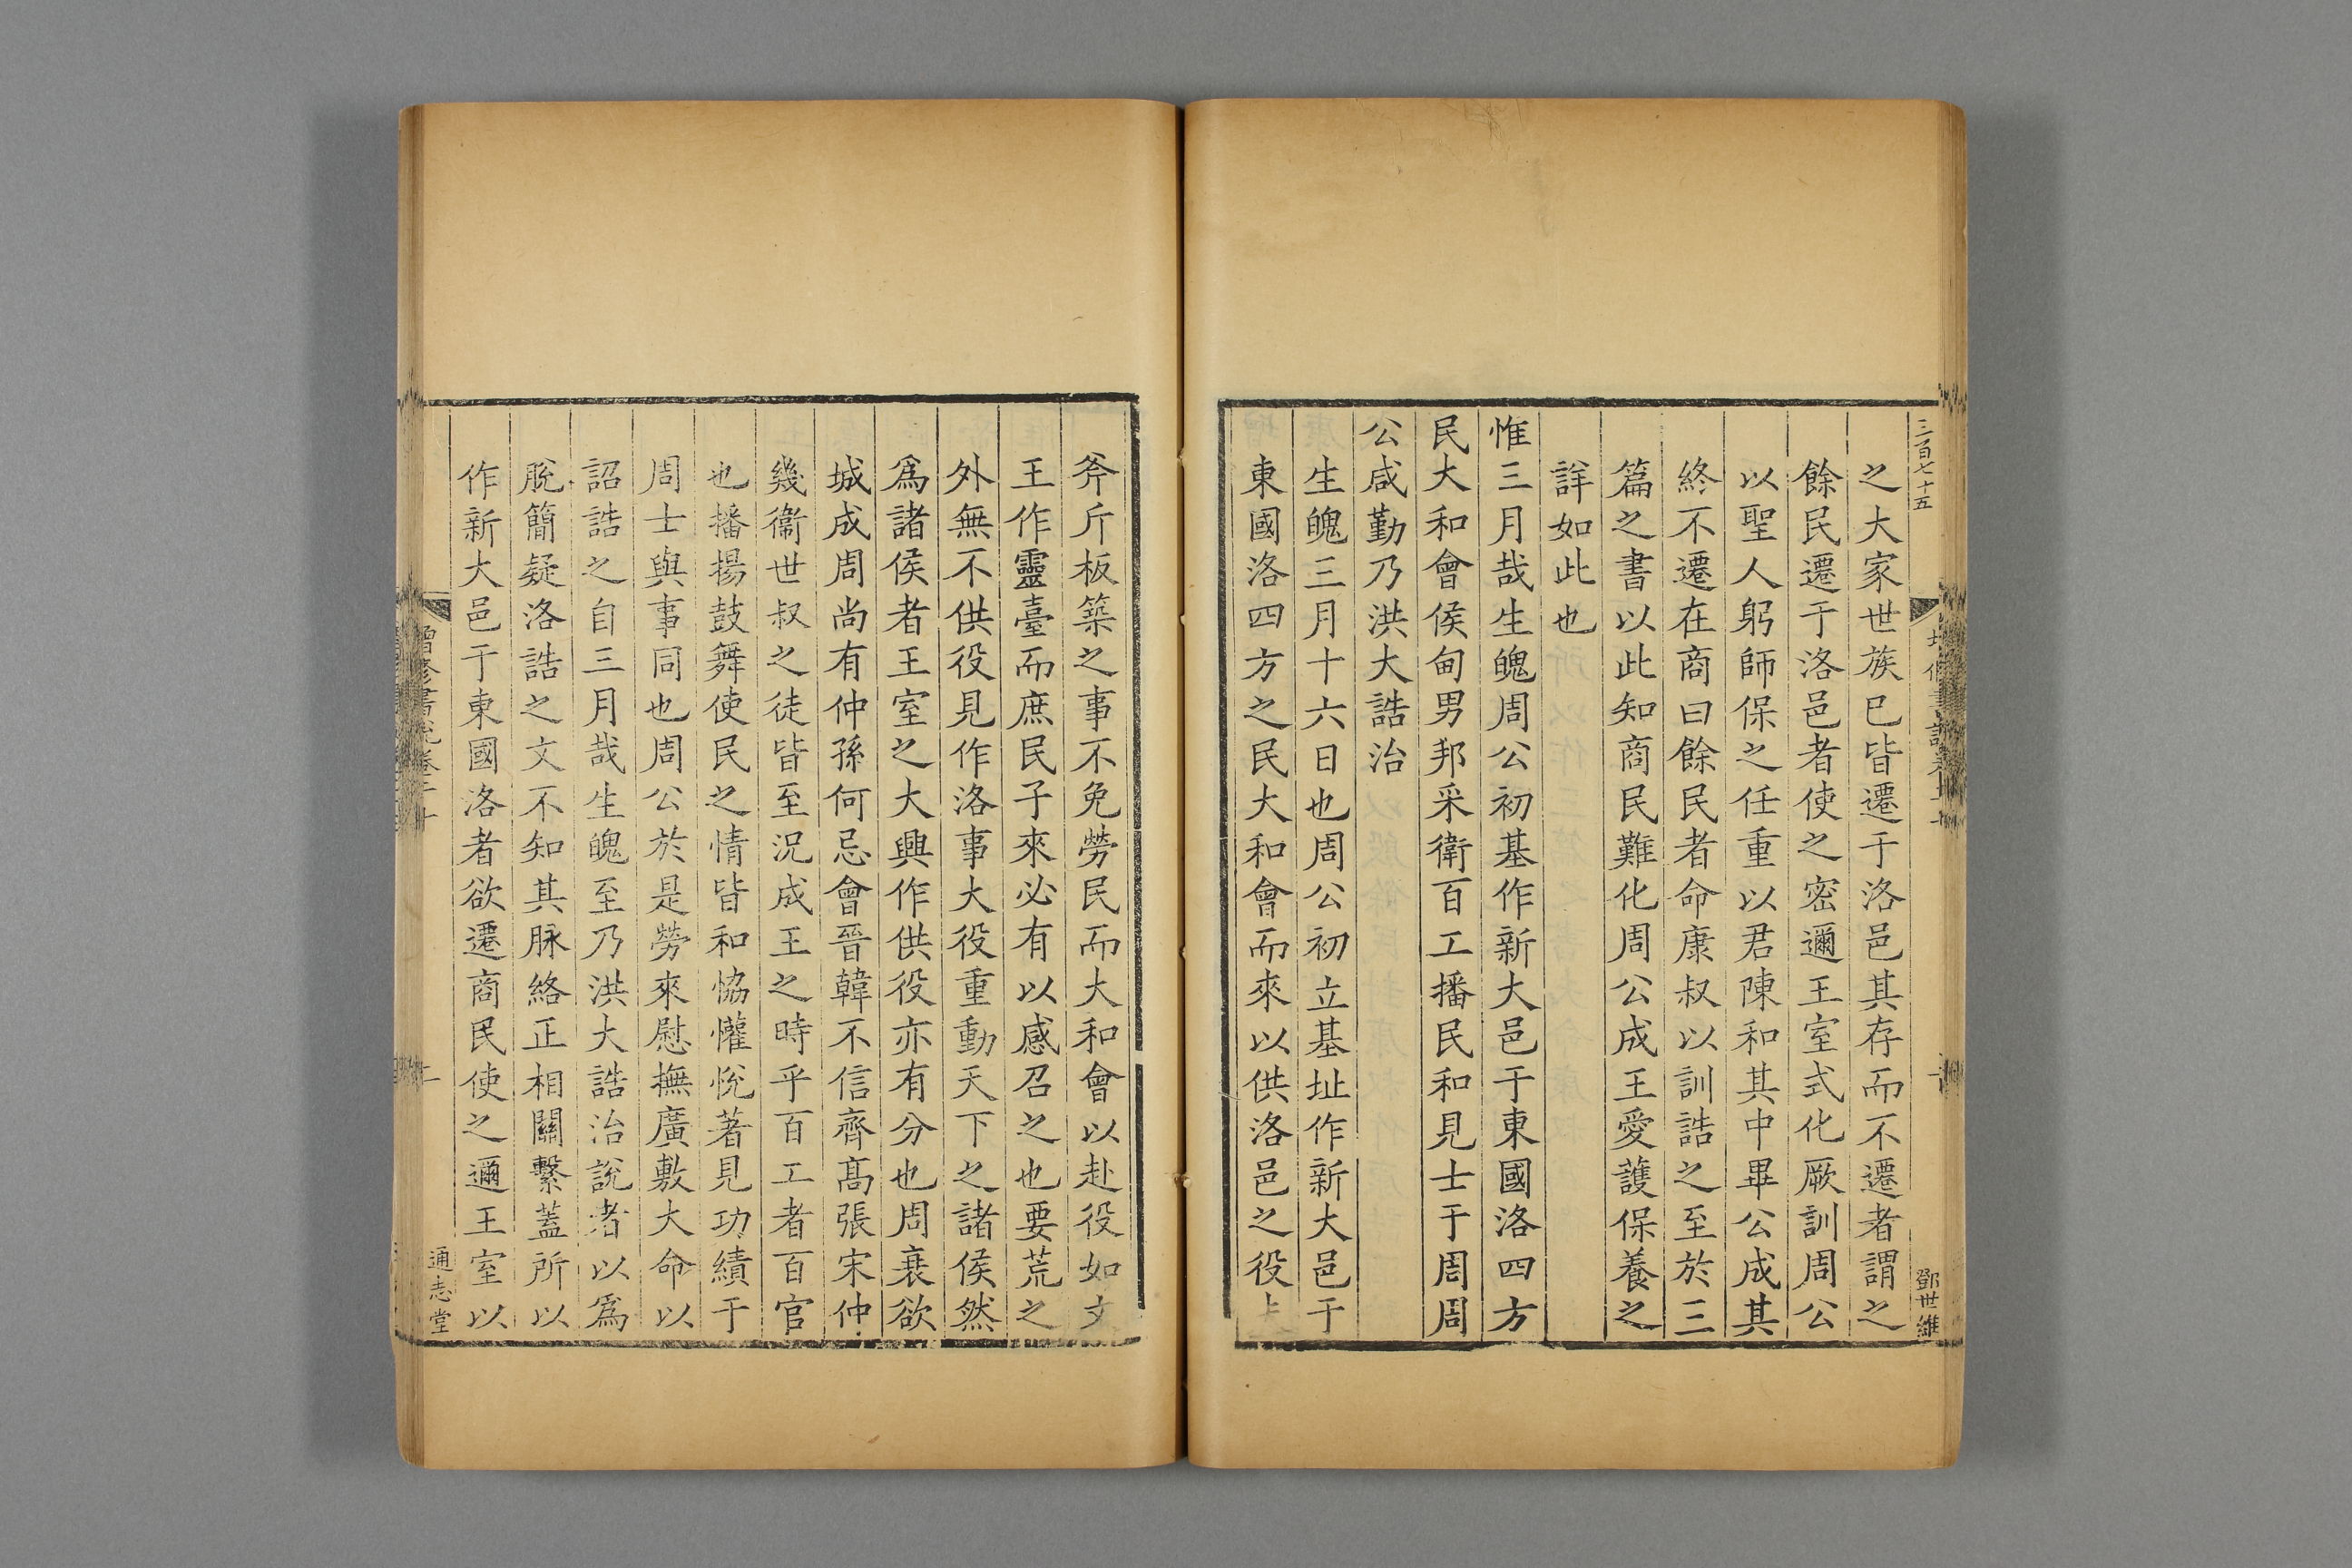 三百七十五
鄧世維
之大家世族已皆遷于洛邑其存而不遷者謂之
餘民遷于洛邑者使之密邇王室式化厥訓周公
以聖人躬師保之任重以君陳和其中畢公成其
終不遷在商曰餘民者命康叔以訓誥之至於三
篇之書以此知商民難化周公成王愛護保養之
詳如此也
惟三月哉生魄周公初基作新大邑于東國洛四方
民大和會侯甸男邦采衛百工播民和見士于周周
公咸勤乃洪大誥治
生魄三月十六日也周公初立基址作新大邑于
東國洛四方之民大和會而來以供洛邑之役
斧斤板築之事不免勞民而大和會以赴役如文
王作靈臺而庶民子來必有以感召之也要荒之
外無不供役見作洛事大役重動天下之諸侯然
爲諸侯者王室之大興作供役亦有分也周衰欲
城成周尚有仲孫何忌會晉韓不信齊髙張宋仲
幾衞世叔之徒皆至況成王之時乎百工者百官
也播揚鼓舞使民之情皆和恊懽悅著見功績于
周士與事同也周公於是勞來慰撫廣敷大命以
詔誥之自三月哉生魄至乃洪大誥治說者以爲
脫簡疑洛誥之文不知其脉絡正相關繫蓋所以
作新大邑于東國洛者欲遷商民使之邇王室以
增修書說卷二十
二
通志堂